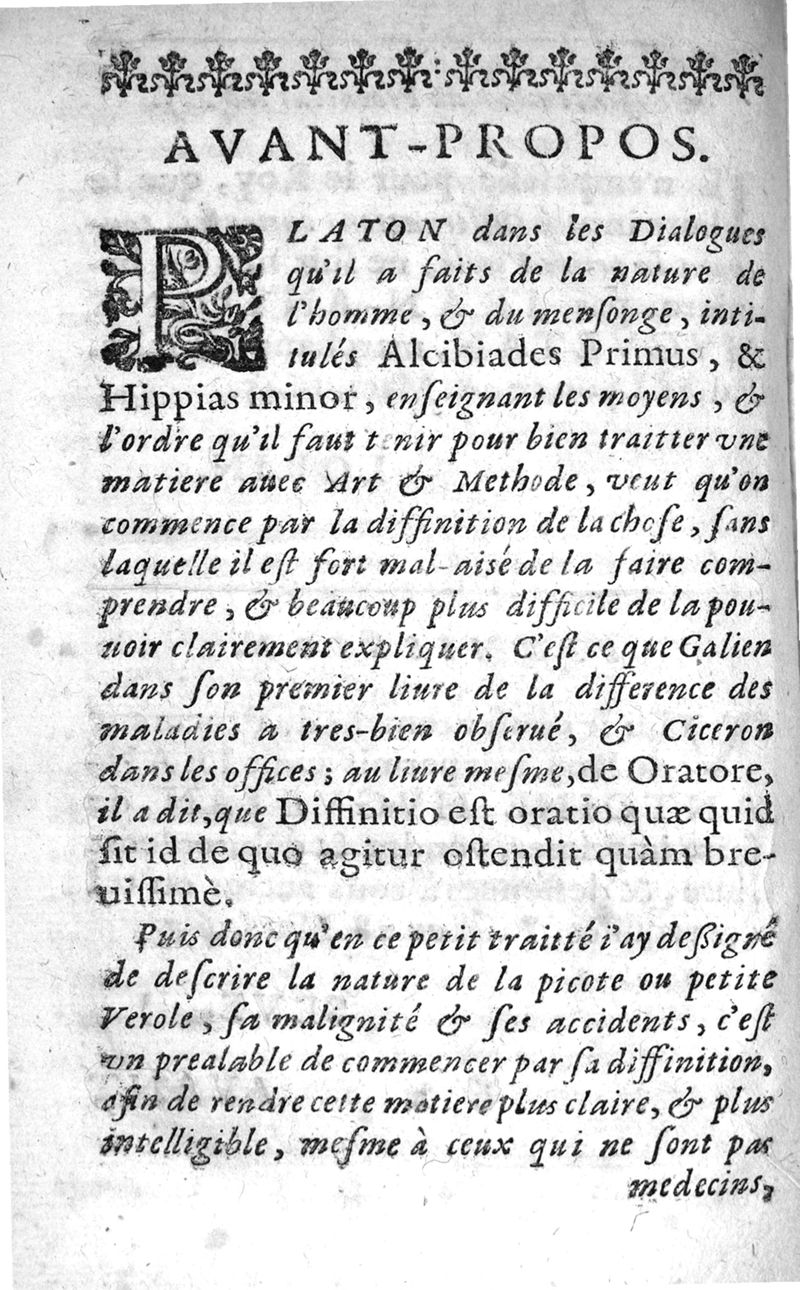 AVANT-PROPOS.
PLATON dans les Dialogues
qu'il a faits de la nature de
l'homme, & du menſonge, inti-
tulés Alcibiades Primus, &
Hippias minor, enſeignant les moyens, &
l'ordre qu'il faut tenir pour bien traitter vne
matiere auec Art & Methode, veut qu'on
commence par la diffinition de la choſe, ſans
laquelle il eſt fort mal-aisé de la faire com-
prendre, & beaucoup plus difficile de la pou-
uoir clairement expliquer. C'eſt ce que Galien
dans ſon premier liure de la difference des
maladies a tres-bien obſerué, & Ciceron
dans les offices; au liure meſme, de Oratore,
il a dit, que Diffinitio eſt oratio quæ quid
ſit id de quo agitur oſtendit quàm bre-
uiſſimè.
Puis donc qu'en ce petit traitté i'ay deſsigné
de deſcrire la nature de la picote ou petite
Verole, ſa malignité & ſes accidents, c'eſt
vn prealable de commencer par ſa diffinition,
afin de rendre cette matiere plus claire, & plus
intelligible, meſme à ceux qui ne ſont pas
medecins,